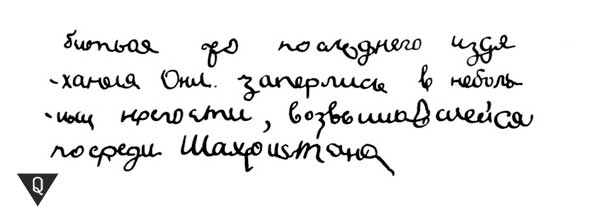 биться до последнего изды
-хания Они. заперлись в неболь
-шщ крепости, возвышавшейся
посреди Шахристана
Q